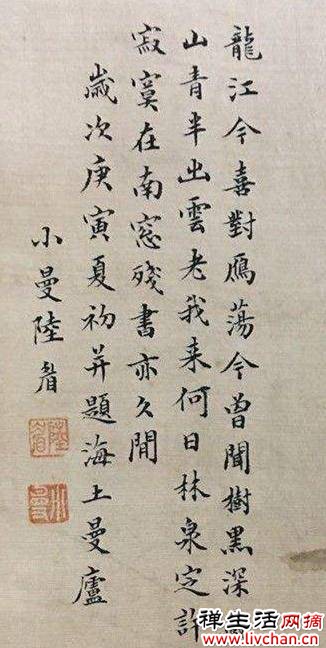 龍江今喜對鴈蕩今曾聞樹黑深
山青半出雲老我来何日林泉定許
寂寞在南窓殘書亦久閒
歲次庚寅夏初并題海上曼廬
小曼陸眉
陸眉
小曼
禅生活网摘
www.livchan.cn